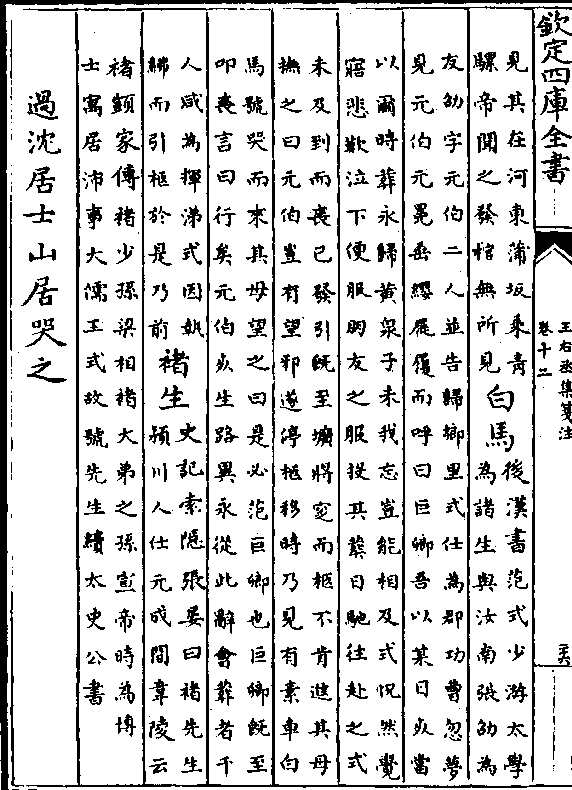 欽定四庫全書
王右丞集箋注
卷十二
見其在河東蒲坂乘青
騾帝聞之發棺無所見
白馬
後漢書范式少游太學
為諸生與汝南張劭為
友劭字元伯二人並告歸鄉里式仕為郡功曹忽夢
見元伯元冕垂纓屣履而呼曰巨卿吾以某日死當
以爾時葬永歸黃泉子未我忘豈能相及式怳然覺
寤悲歎泣下便服朋友之服投其葬日馳往赴之式
未及到而喪已發引既至壙將窆而柩不肯進其母
撫之曰元伯豈有望邪遂停柩移時乃見有素車白
馬號哭而來其母望之曰是必范巨卿也巨卿既至
叩喪言曰行矣元伯死生路異永從此辭會葬者千
人咸為揮涕式因執
紼而引柩於是乃前
褚生
史記索隱張晏曰褚先生
潁川人仕元成間韋陵云
褚顗家傳褚少孫梁相褚大弟之孫宣帝時為博
士寓居沛事大儒王式故號先生續太史公書
過沈居士山居哭之